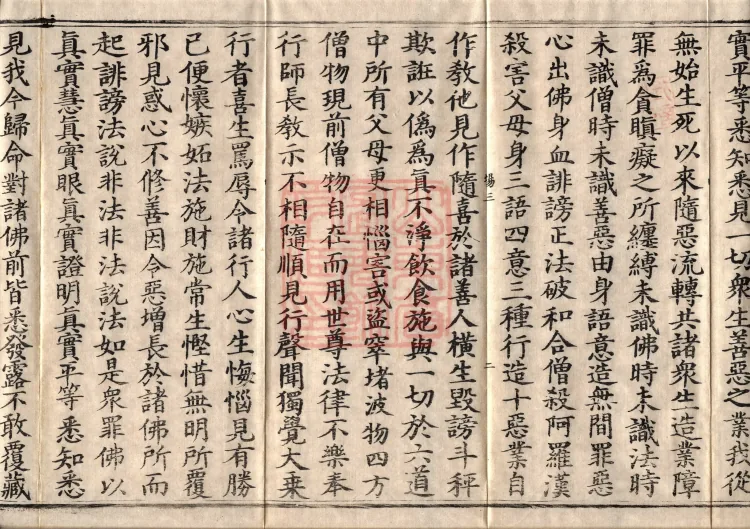 實平等悉知悉見一切衆生善惡之業我從
無始生死以來隨惡流轉共諸衆生造業障
罪爲貪瞋癡之所纏縛未識佛時未識法時
未識僧時未識善惡由身語意造無間罪惡
心出佛身血誹謗正法破和合僧殺阿羅漢
殺害父母身三語四意三種行造十惡業自
作教他見作隨喜於諸善人横生毀謗斗秤
欺誑以僞爲真不淨飲食施與一切於六道
中所有父母更相惱害或盜窣堵波物四方
僧物現前僧物自在而用世尊法律不樂奉
行師長教示不相隨順見行聲聞獨覺大乗
行者喜生罵辱令諸行人心生悔惱見有勝
己便懷嫉妬法施財施常生慳惜無明所覆
邪見惑心不修善因令惡增長於諸佛所而
起誹謗法說非法非法說法如是衆罪佛以
眞實慧眞實眼眞實證明眞實平等悉知悉
見我今歸命對諸佛前皆悉發露不敢覆藏